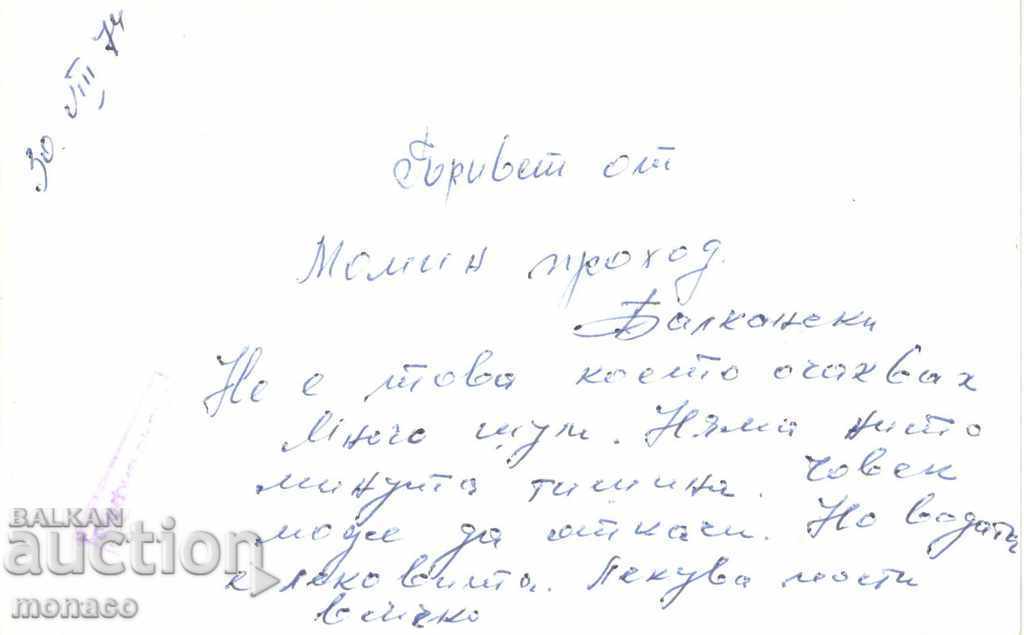 30. VIII, 74
Привет от
Момин проход.
Балкански
Не е това което очаквах
Много шум. Няма нито
минута тишина. Човек
може да откачи. Но водата
е лековита. Лекува почти
всичко
BALKAN
auction
monaco